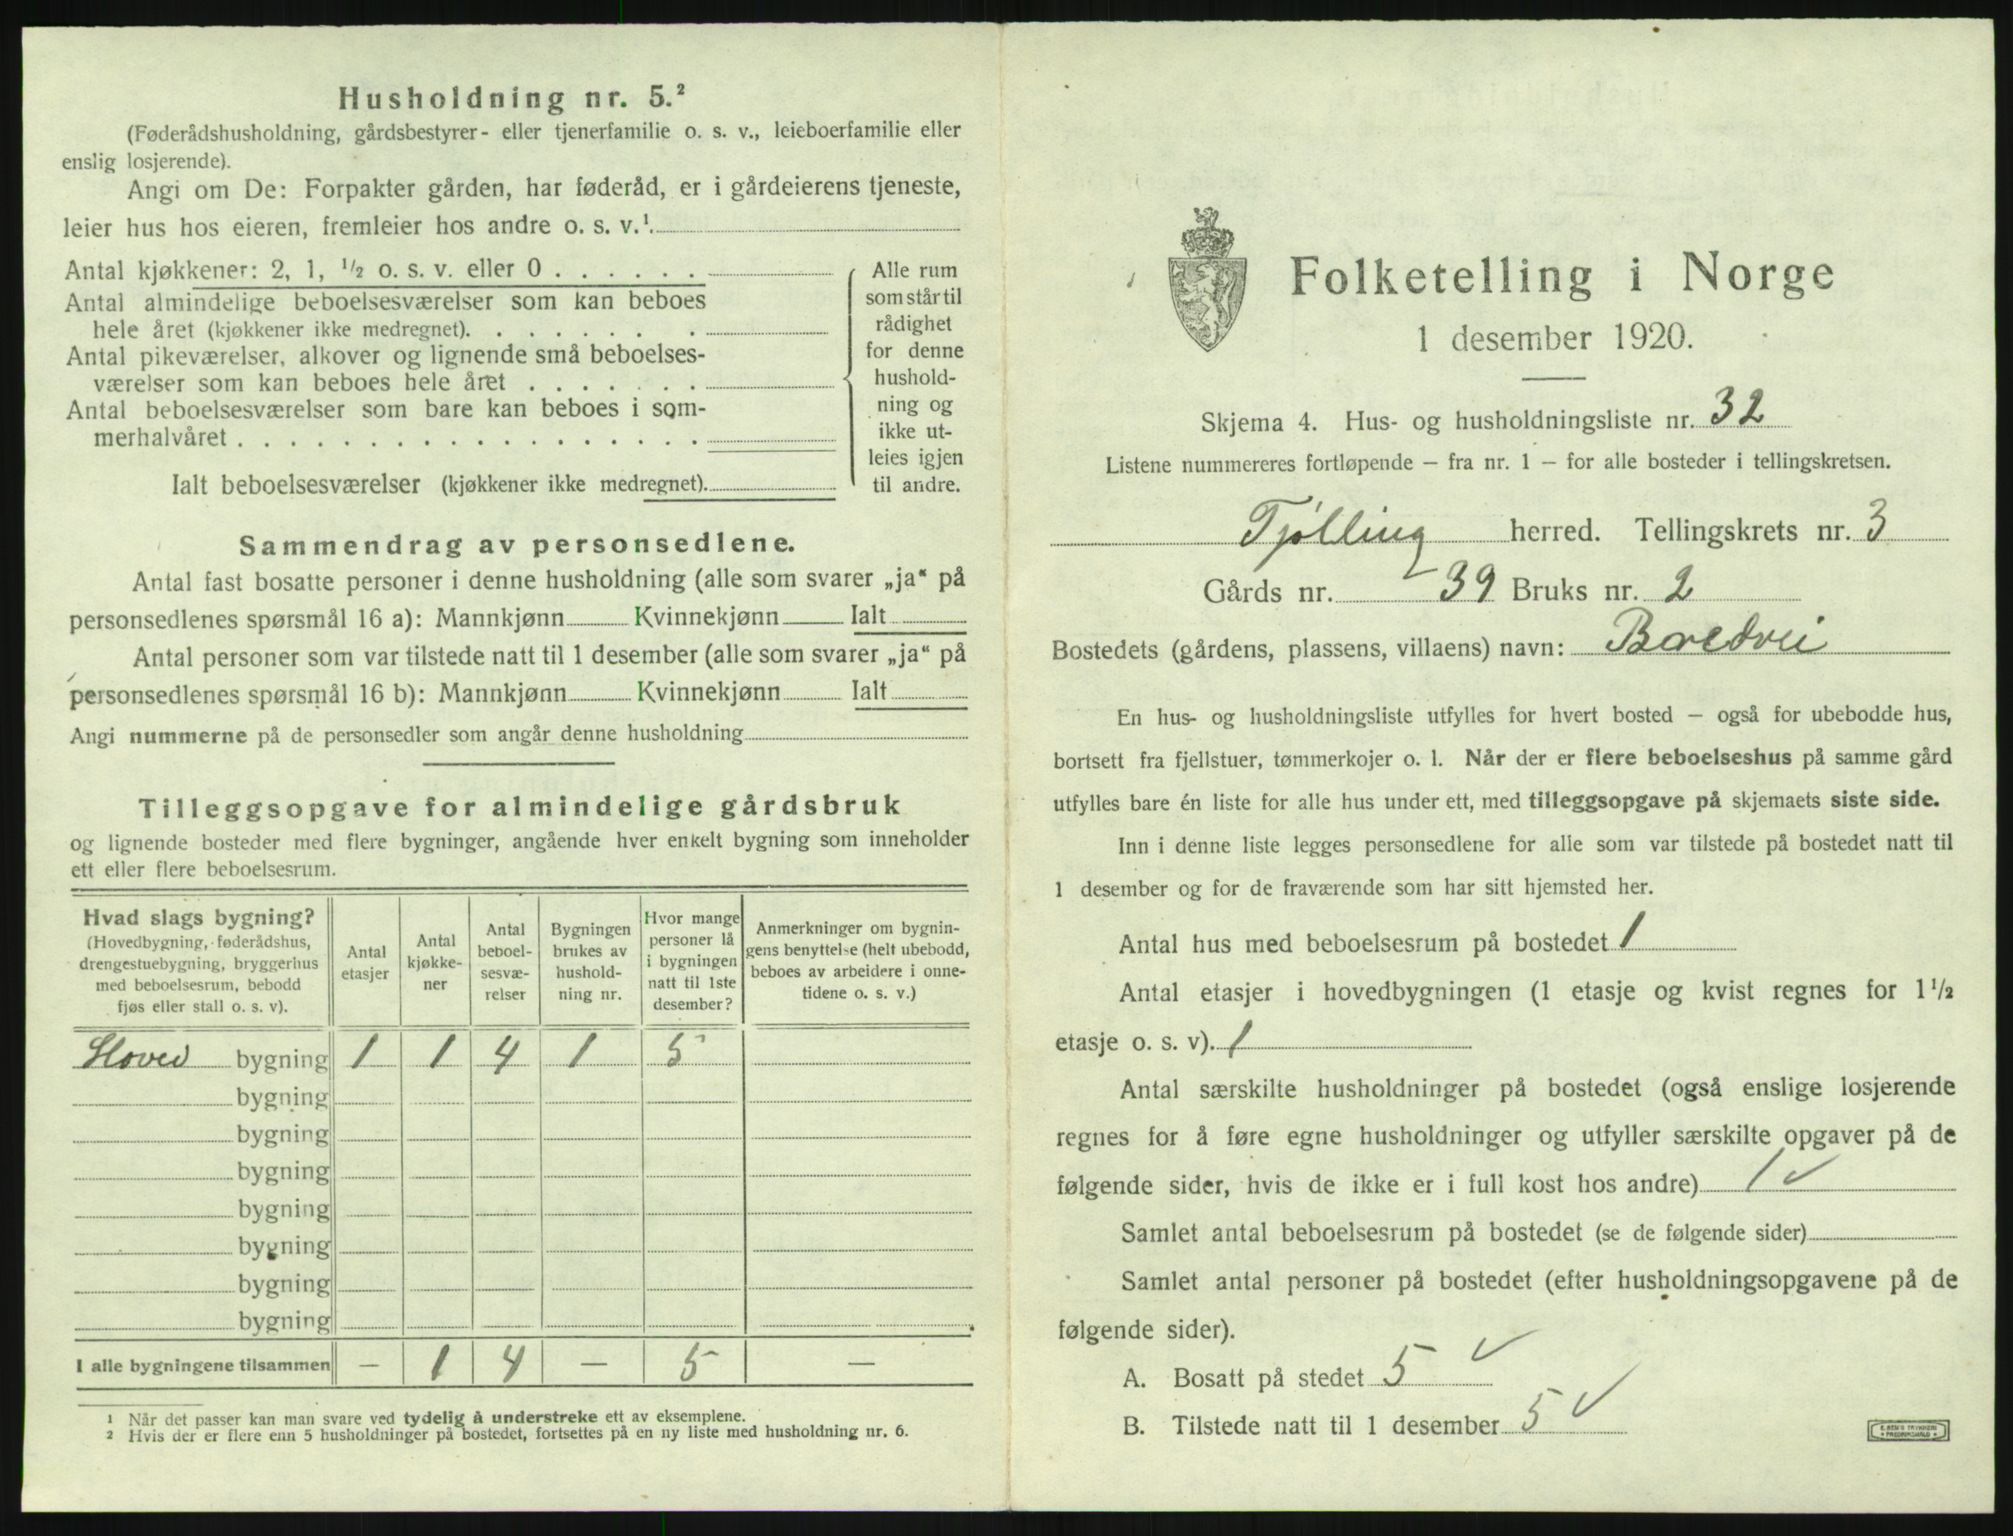 Husholdning nr. 5.²
(Føderådshusholdning, gårdsbestyrer- eller tjenerfamilie o. s. v., leieboerfamilie eller
enslig losjerende).
Angi om De: Forpakter gården, har føderåd, er i gårdeierens tjeneste,
leier hus hos eieren, fremleier hos andre o. s. v.¹.
Antal kjøkkener: 2, 1, ½ o. s. v. eller 0 . . . . . .
Antal almindelige beboelsesværelser som kan beboes
hele året (kjøkkener ikke medregnet). . . . . . . . .
Antal pikeværelser, alkover og lignende små beboelses-
værelser som kan beboes hele året . . . . . . .
Antal beboelsesværelser som bare kan beboes i som-
merhalvåret . . . . . . . . . . . . . . . . . .
Ialt beboelsesværelser (kjøkkener ikke medregnet).
Alle rum
som står til
rådighet
for denne
hushold-
ning og
ikke ut-
leies igjen
til andre.
Sammendrag av personsedlene.
Antal fast bosatte personer i denne husholdning (alle som svarer „ja“ på
personsedlenes spørsmål 16 a): Mannkjønn Kvinnekjønn Ialt
Antal personer som var tilstede natt til 1 desember (alle som svarer „ja“ på
personsedlenes spørsmål 16 b): Mannkjønn Kvinnekjønn Ialt
Angi nummerne på de personsedler som angår denne husholdning
Tilleggsopgave for almindelige gårdsbruk
og lignende bosteder med flere bygninger, angående hver enkelt bygning som inneholder
ett eller flere beboelsesrum.
Hvad slags bygning?
(Hovedbygning, føderådshus,
drengestuebygning, bryggerhus
med beboelsesrum, bebodd
fjøs eller stall o. s. v).
Antal
etasjer
Antal
kjøkke-
ner
Antal
beboel-
sesvæ-
relser
Bygningen
brukes av
hushold-
ning nr.
Hvor mange
personer lå
i bygningen
natt til 1ste
desember?
Anmerkninger om bygnin-
gens benyttelse (helt ubebodd,
beboes av arbeidere i onne-
tidene o. s. v.)
Hoved bygning 1 1 4 1 5
bygning
bygning
bygning
bygning
bygning
bygning
bygning
I alle bygningene tilsammen — 1 4 — 5 —
¹ Når det passer kan man svare ved tydelig å understreke ett av eksemplene.
² Hvis der er flere enn 5 husholdninger på bostedet, fortsettes på en ny liste med husholdning nr. 6.
Folketelling i Norge
1 desember 1920.
Skjema 4. Hus- og husholdningsliste nr. 32
Listene nummereres fortløpende – fra nr. 1 – for alle bosteder i tellingskretsen.
Tjølling herred. Tellingskrets nr. 3
Gårds nr. 39 Bruks nr. 2
Bostedets (gårdens, plassens, villaens) navn: Bredvei
En hus- og husholdningsliste utfylles for hvert bosted – også for ubebodde hus,
bortsett fra fjellstuer, tømmerkojer o. l. Når der er flere beboelseshus på samme gård
utfylles bare én liste for alle hus under ett, med tilleggsopgave på skjemaets siste side.
Inn i denne liste legges personsedlene for alle som var tilstede på bostedet natt til
1 desember og for de fraværende som har sitt hjemsted her.
Antal hus med beboelsesrum på bostedet 1
Antal etasjer i hovedbygningen (1 etasje og kvist regnes for 1½
etasje o. s. v). 1
Antal særskilte husholdninger på bostedet (også enslige losjerende
regnes for å føre egne husholdninger og utfyller særskilte opgaver på de
følgende sider, hvis de ikke er i full kost hos andre) 1 ✓
Samlet antal beboelsesrum på bostedet (se de følgende sider)
Samlet antal personer på bostedet (efter husholdningsopgavene på de
følgende sider).
A. Bosatt på stedet 5 ✓
B. Tilstede natt til 1 desember 5 ✓